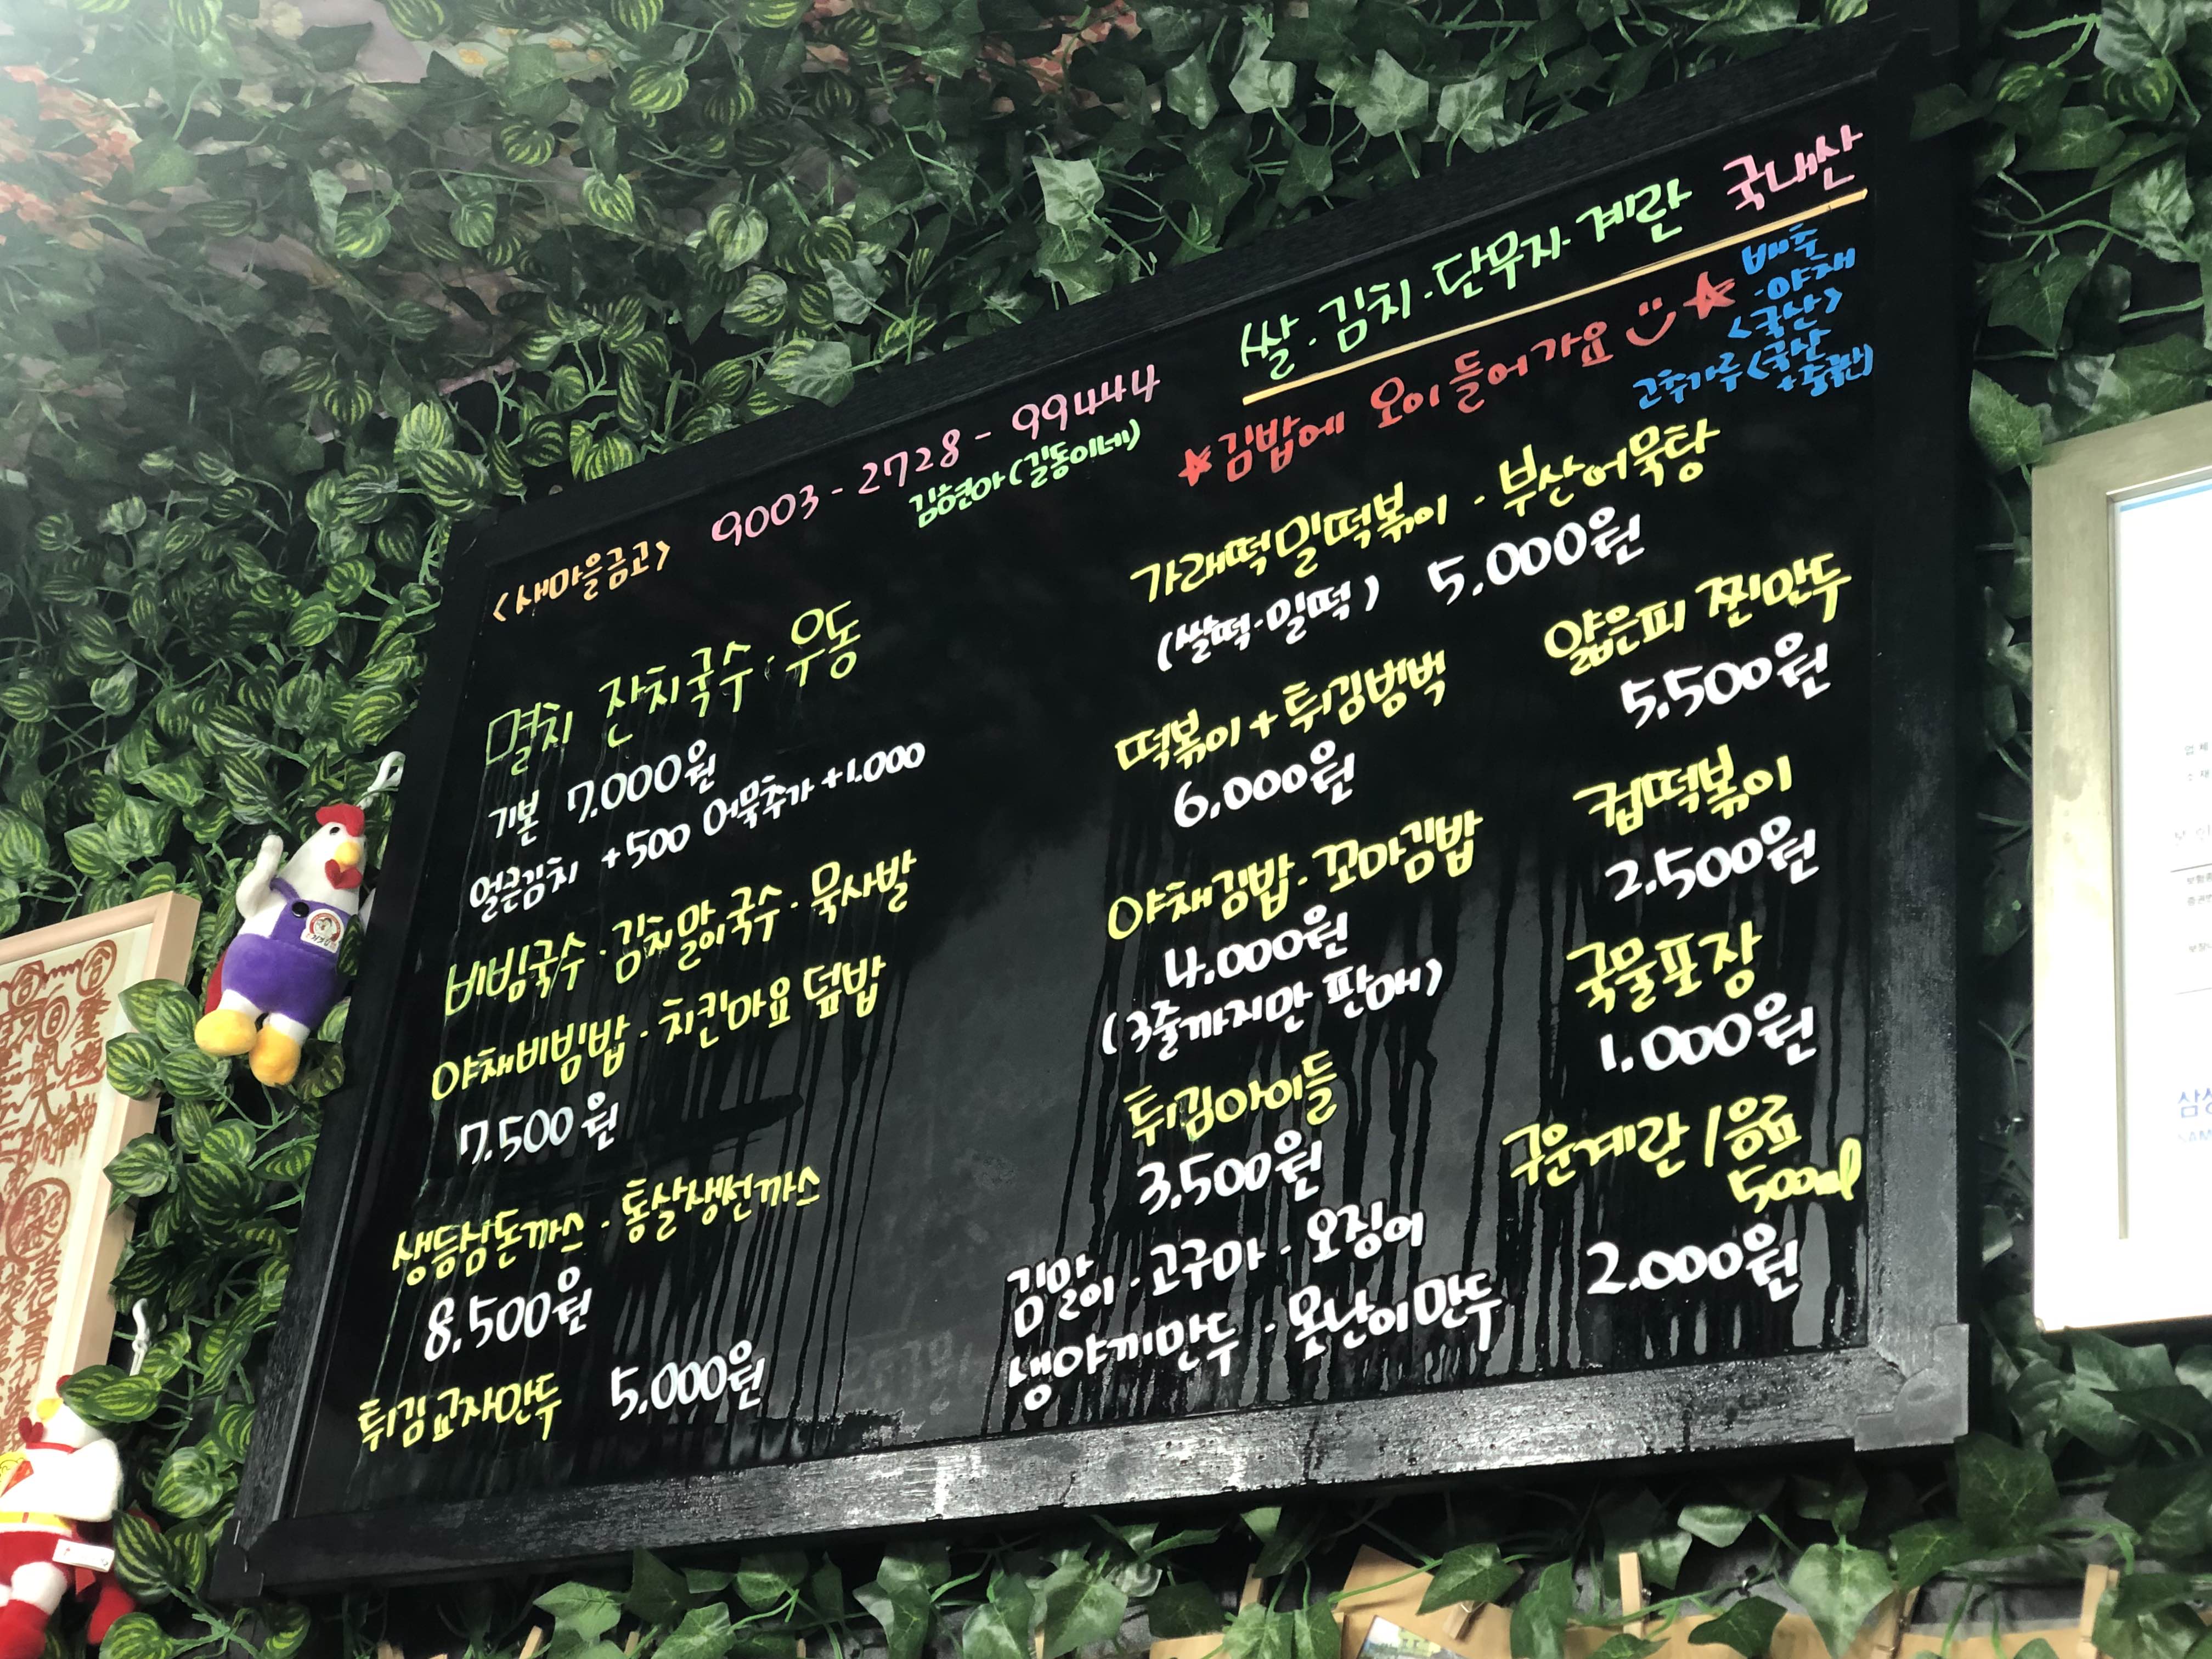 <새마을금고> 9003-2728-99444
김현아(길동이네)
쌀·김치·단무지·계란 국내산
★김밥에 오이 들어가요 ★
배추
·야채
<국산>
고추가루(국산
+중국)
멸치 잔치국수·우동
기본 7.000원
얼큰김치 +500 어묵추가 +1.000
비빔국수·김치말이국수·묵사발
야채비빔밥·치킨마요 덮밥
7.500원
생등심돈까스·통살생선까스
8.500원
튀김교자만두 5.000원
가래떡밀떡볶이·부산어묵탕
(쌀떡·밀떡) 5.000원
떡볶이+튀김범벅
6.000원
야채김밥·꼬마김밥
4.000원
(3줄까지만 판매)
튀김아이들
3.500원
김말이·고구마·오징어
생야끼만두·못난이만두
얇은피 찐만두
5.500원
컵떡볶이
2.500원
국물포장
1.000원
구운계란/음료
500ml
2.000원